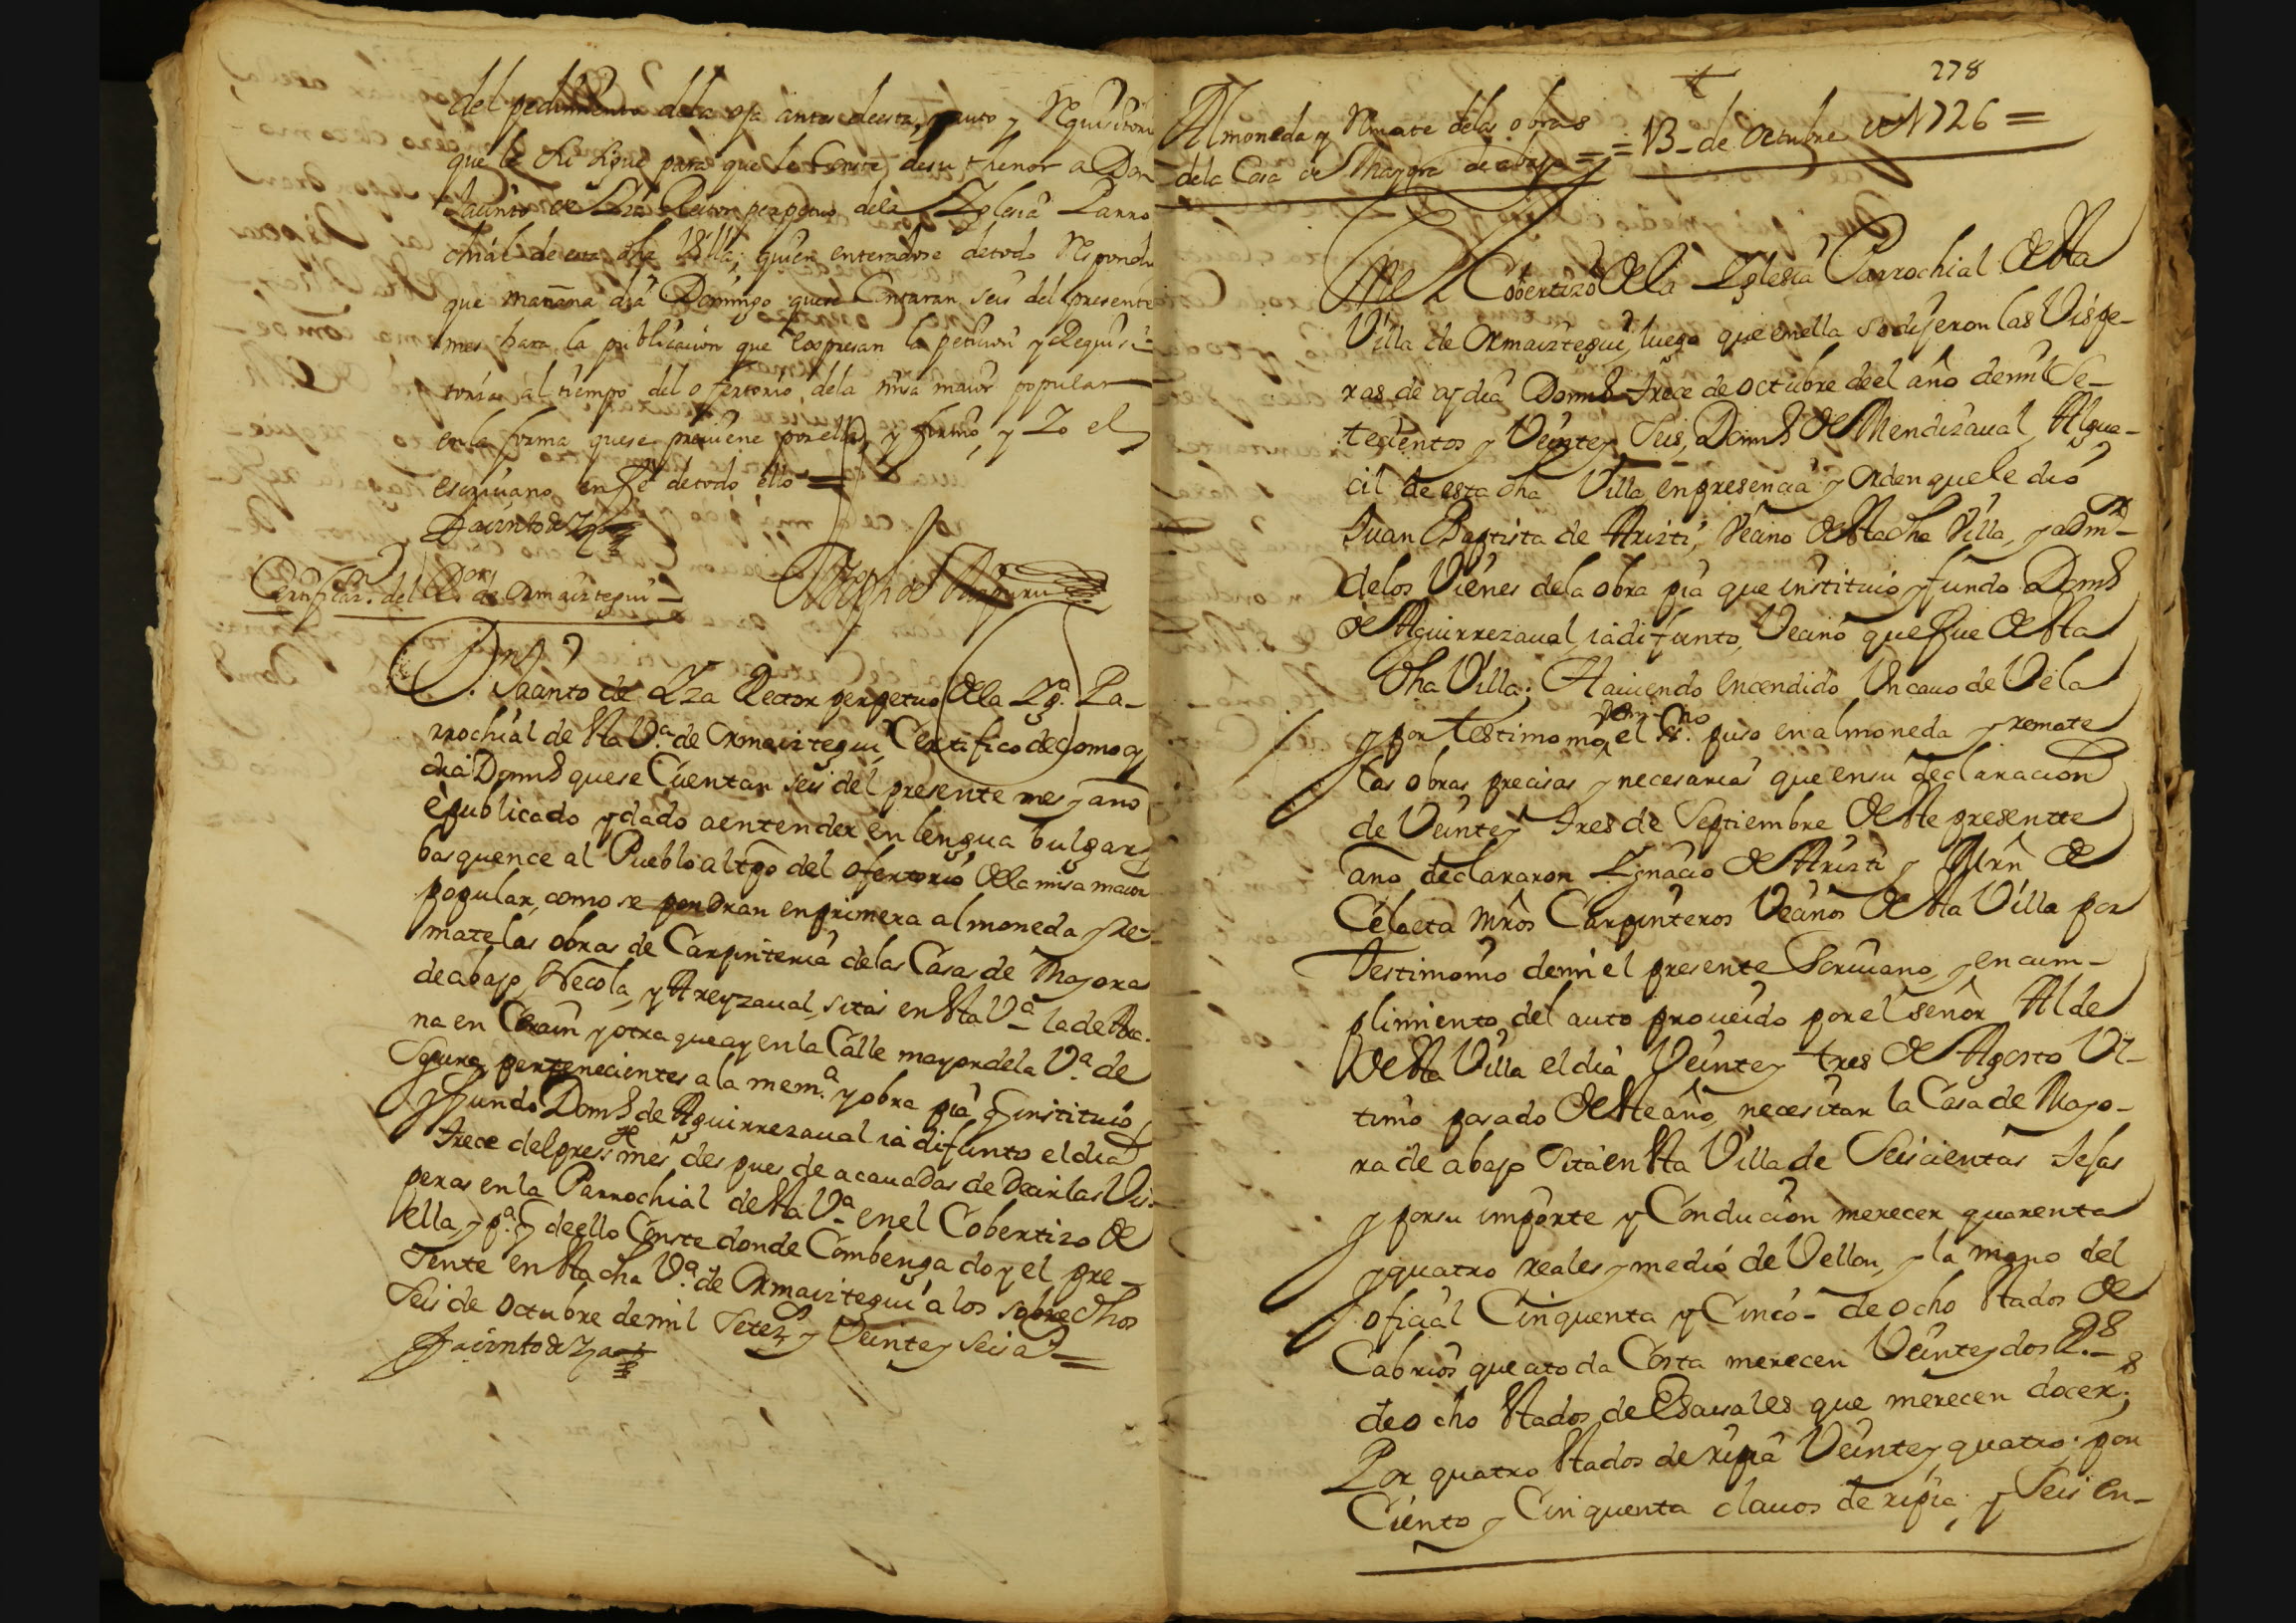 del pedimiento dela oja antes desta, y auto y Requisitoria
que le Sigue para que le Conste desu thenor a Don
Jacinto de Yza Rector perpetuo dela Yglesia Parro
chiâl de esta dha Villa; quien enteradose detodo Respondio
que mañana dia Domingo quese Contaran seis del presente
mes hara la publicacion que expresan la peticion y Requisi-
toria al tiempo del ofertorio dela misa maior popular
en la forma quese previene por ellas, y firmo, y Yo el
escrivano enfe detodo ello =
Jacinto de Yza
Certificaz.on del R.or de Ormaiztegui
D.n Jacinto de Yza Rector perpetuo dela Yg.a Pa-
rrochial de Sta V.a de Ormaiztegui, Certifico de Como oy
dia Dom.o quese Cuentan seis del presente mes y año
è publicado y dado aentender en lengua bulgar
basquence al Pueblo al tpo del ofertorio dela misa maior
popular, como se pondran en primera almoneda y Re-
mate las obras de Carpinteria delas Casas de Mayora
de abajo, Necola, y Areyzaval, sitas en Sta V.a la de
na en Cerain y otra que ay en la Calle mayor dela V.a de
Segura, pertenecientes a la mem.a y obra pia q instituio
y fundo Dom.o de Aguirrezaval ia difunto el dia
trece del pres.te mes des pues de acavadas de Decir las Vis-
peras en la Parrochial de Sta V.a en el Cobertizo de
ella, y p.a q deello Conste donde Combenga doy el pre-
sente en Sta dha V.a de Ormaiztegui a los sobre dhos
Seis de Octubre demil Setez.s y Veinte y Seis a.s =
Jacinto de Yza
278
Almoneda y Remate delas obras
dela Casa de Mayora de abajo = = 13 - de Octubre de 1726 =
En el Cobertizo dela Yglesia Parrochial de Sta
Villa de Ormaiztegui, luego que enella se dijeron las Vispe-
ras de oy dia Dom.o trece de Octubre de el año demil Se-
tecientos y Veinte y Seis, Dom.o de Mendizaval Algua-
cil de esta dha Villa en presencia y Orden que le dio
Juan Baptista de Arizti, Vecino de Sta dha Villa, y adm.or
delos Vienes dela obra pia que instituio y fundo Dom.o
de Aguirrezaval ia difunto, Vecino que fue de Sta
dha Villa; Haviendo encendido Un cavo de Vela
y por testimonio de mi el es.no puso en almoneda y remate
las obras precisas y necesarias que ensu declaracion
de Veinte y tres de Septiembre de Ste presentte
año declararon Ygnacio de Arizti y Mrn de
Celaeta Mros Carpinteros Vecinos de Sta Villa por
testimonio demi el presente Scrivano, y en cum-
plimiento del auto proveido por el señor Alde
de Sta Villa el dia Veinte y tres de Agosto Ul-
timo pasado de Ste año, necesitan la Casa de Mayo-
ra de abajo sita en Sta Villa de Seiscientas Tejas
y por su importe y Conducion merecer quarenta
y quatro reales y medio de Vellon, y la mano del
oficial Cinquenta y Cinco - de ocho Stados de
Cabrios que a toda Costa merecen Veinte y dos R.s
de ocho Stados de Esavales que merecen doce r.s
Por quatro Stados de ripia Veinte y quatro. por
Ciento y Cinquenta clavos de ripia, y Seis en-